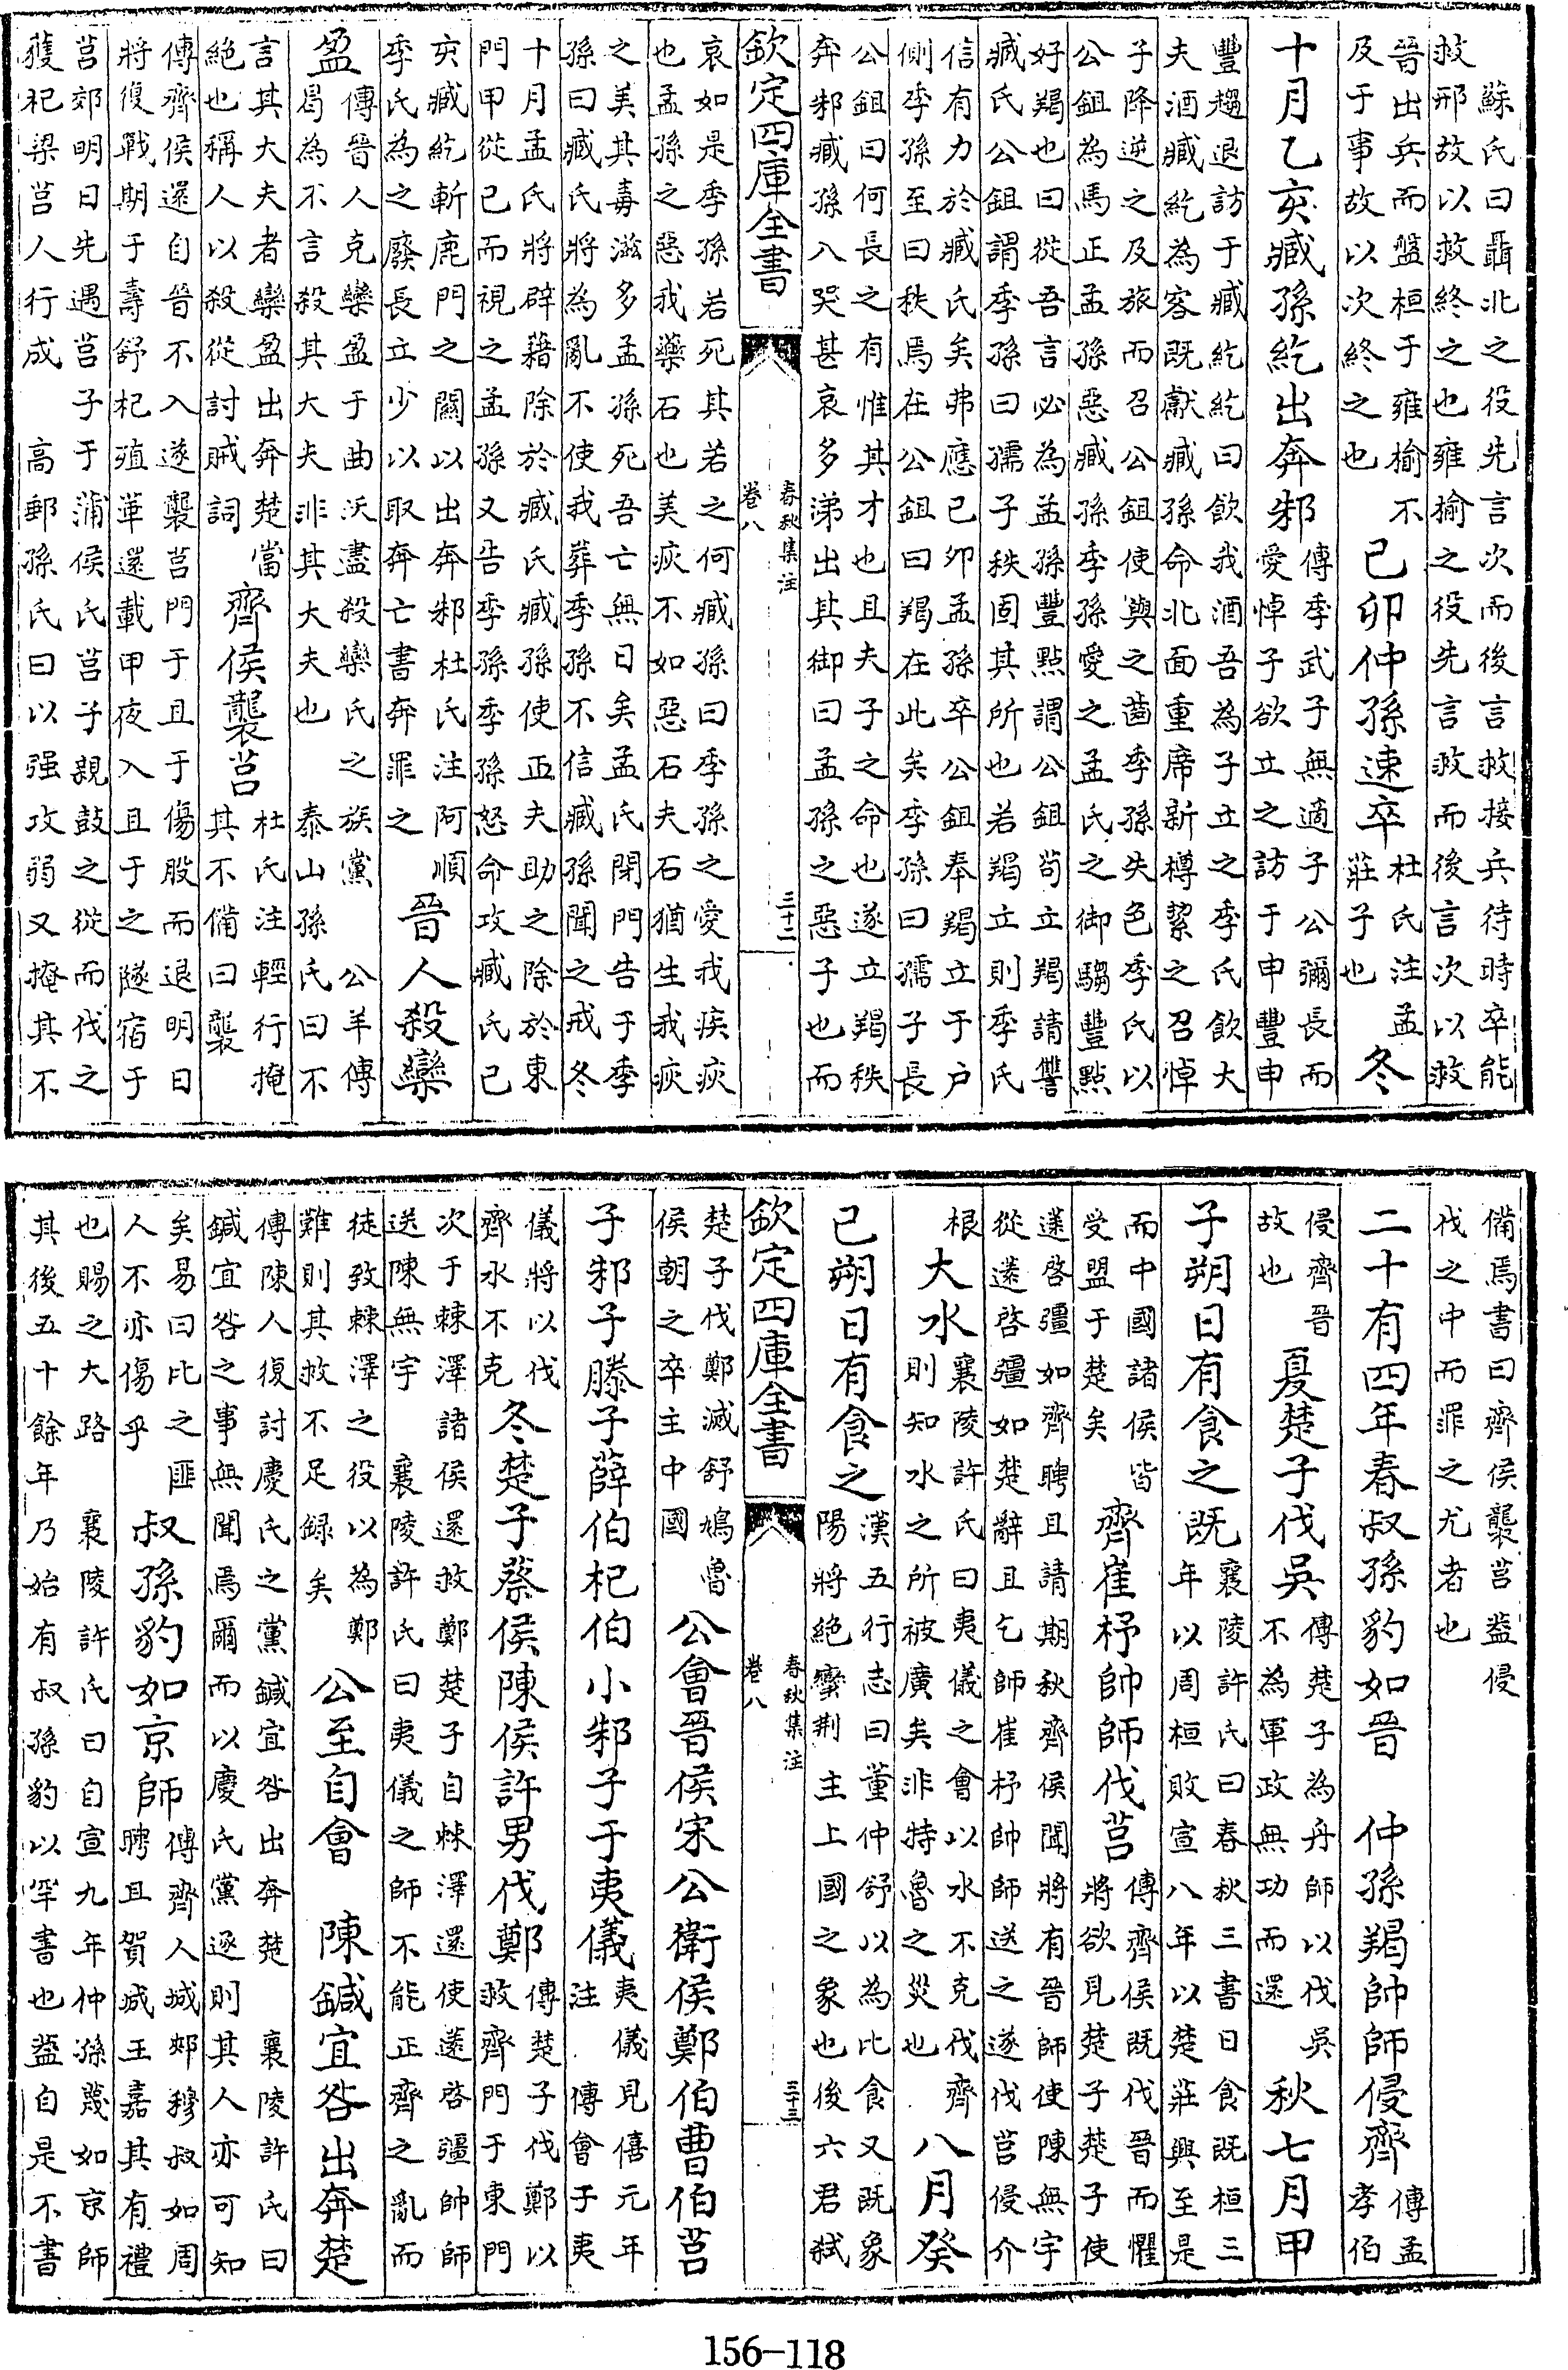 蘇氏曰聶北之役先言次而後言救接兵待時卒能
救邢故以救終之也雍榆之役先言救而後言次以救
晉出兵而盤桓于雍榆不及于事故以次終之也 己卯仲孫速卒 杜氏注孟莊子也 冬
十月乙亥臧孫紇出奔邾 傳季武子無適子公彌長而愛悼子欲立之訪于申豐申
豐趨退訪于臧紇紇曰飲我酒吾為子立之季氏飲大
夫酒臧紇為客既獻臧孫命北面重席新樽絜之召悼
子降逆之及旅而召公鉏使與之齒季孫失色季氏以
公鉏為馬正孟孫惡臧孫季孫愛之孟氏之御騶豐點
好羯也曰從吾言必為孟孫豐點謂公鉏苟立羯請讐
臧氏公鉏謂季孫曰孺子秩固其所也若羯立則季氏
信有力於臧氏矣弗應己卯孟孫卒公鉏奉羯立于户
側季孫至曰秩焉在公鉏曰羯在此矣季孫曰孺子長
公鉏曰何長之有惟其才也且夫子之命也遂立羯秩
奔邾臧孫入哭甚哀多涕出其御曰孟孫之惡子也而
欽定四庫全書 春秋集注 卷八 三十二
哀如是季孫若死其若之何臧孫曰季孫之愛我疾疢
也孟孫之惡我藥石也美疢不如惡石夫石猶生我疢
之美其毒滋多孟孫死吾亡無日矣孟氏閉門告于季
孫曰臧氏將為亂不使我葬季孫不信臧孫聞之戒冬
十月孟氏將辟藉除於臧氏臧孫使正夫助之除於東
門甲從己而視之孟孫又告季孫季孫怒命攻臧氏己
亥臧紇斬鹿門之關以出奔邾杜氏注阿順季氏為之廢長立少以取奔亡書奔罪之 晉人殺欒
盈 傳晉人克欒盈于曲沃盡殺欒氏之族黨 公羊傳曷為不言殺其大夫非其大夫也 泰山孫氏曰不
言其大夫者欒盈出奔楚當絶也稱人以殺從討賊詞 齊侯襲莒 杜氏注輕行掩其不備曰襲
傳齊侯還自晉不入遂襲莒門于且于傷股而退明日
將復戰期于壽舒杞殖華還載甲夜入且于之隧宿于
莒郊明日先遇莒子于蒲侯氏莒子親鼓之從而伐之
獲杞梁莒人行成 高郵孫氏曰以强攻弱又掩其不
備焉書曰齊侯襲莒葢侵
伐之中而罪之尤者也
二十有四年春叔孫豹如晉 仲孫羯帥師侵齊 傳孟孝伯
侵齊晉故也 夏楚子伐吳 傳楚子為舟師以伐吳不為軍政無功而還 秋七月甲
子朔日有食之既 襄陵許氏曰春秋三書日食既桓三年以周桓敗宣八年以楚莊興至是
而中國諸侯皆受盟于楚矣 齊崔杼帥師伐莒 傳齊侯既伐晉而懼將欲見楚子楚子使
薳啓疆如齊聘且請期秋齊侯聞將有晉師使陳無宇
從薳啓疆如楚辭且乞師崔杼帥師送之遂伐莒侵介
根 大水 襄陵許氏曰夷儀之會以水不克伐齊則知水之所被廣矣非特魯之災也 八月癸
已朔日有食之 漢五行志曰董仲舒以為比食又既象陽將絶蠻荆主上國之象也後六君弑
欽定四庫全書 春秋集注 卷八 三十三
楚子伐鄭滅舒鳩魯侯朝之卒主中國 公會晉侯宋公衛侯鄭伯曹伯莒
子邾子滕子薛伯杞伯小邾子于夷儀 夷儀見僖元年注 傳會于夷
儀將以伐齊水不克 冬楚子蔡侯陳侯許男伐鄭 傳楚子伐鄭以救齊門于東門
次于棘澤諸侯還救鄭楚子自棘澤還使薳啓疆帥師
送陳無宇 襄陵許氏曰夷儀之師不能正齊之亂而
徒致棘澤之役以為鄭難則其救不足録矣 公至自會 陳鍼宜咎出奔楚
傳陳人復討慶氏之黨鍼宜咎出奔楚 襄陵許氏曰
鍼宜咎之事無聞焉爾而以慶氏黨逐則其人亦可知
矣易曰比之匪人不亦傷乎 叔孫豹如京師 傳齊人城郟穆叔如周聘且賀城王嘉其有禮
也賜之大路 襄陵許氏曰自宣九年仲孫蔑如京師
其後五十餘年乃始有叔孫豹以罕書也葢自是不書
156-118